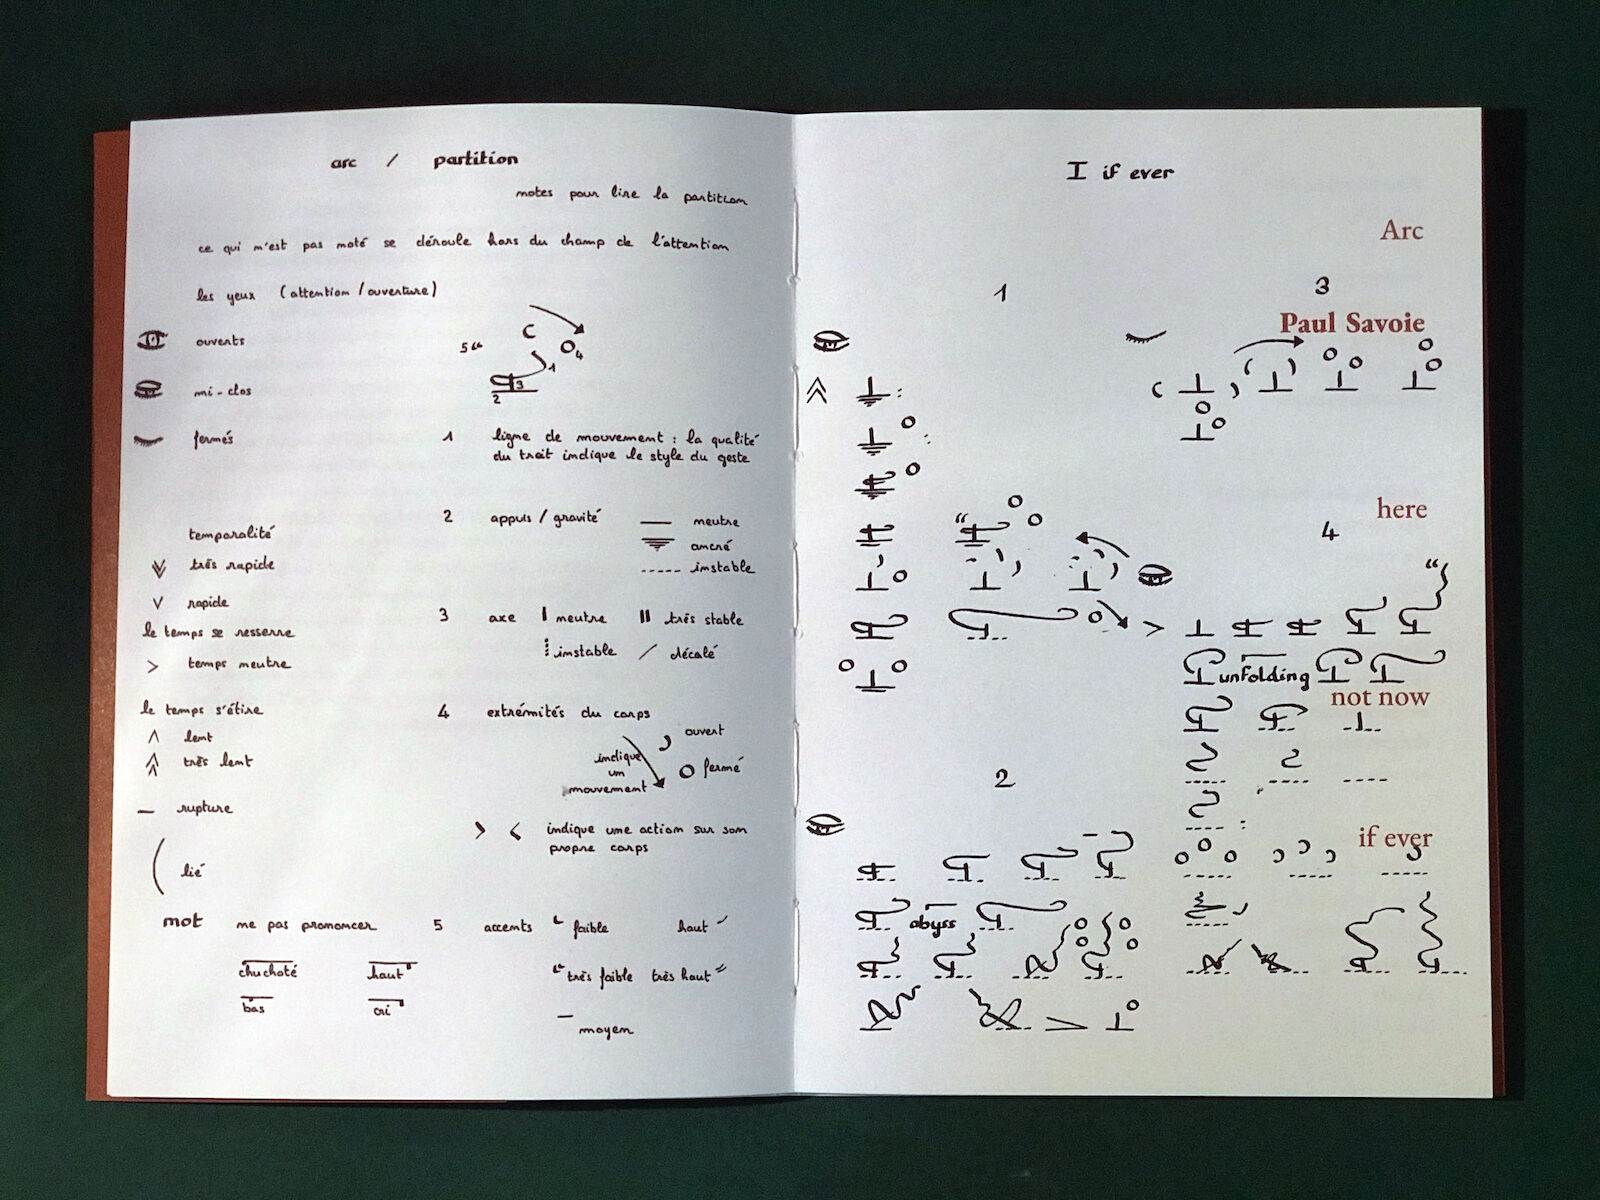 arc / partition
notes pour lire la partition
ce qui n'est pas noté se déroule hors du champ de l'attention
les yeux (attention / ouverture)
ouverts
mi-clos
fermés
5 "
1
4
3
2
1 ligne de mouvement : la qualité
du trait indique le style du geste
2 appuis / gravité
neutre
ancré
instable
temporalité
très rapide
rapide
le temps se resserre
temps neutre
le temps s'étire
lent
très lent
rupture
lié
3 axe neutre très stable
instable décalé
4 extrémités du corps
ouvert
fermé
indique
un
mouvement
indique une action sur son
propre corps
mot ne pas prononcer
chuchoté haut
bas cri
5 accents faible haut
très faible très haut
moyen
I if ever
Arc
1
3
Paul Savoie
here
4
unfolding
not now
2
if ever
abyss